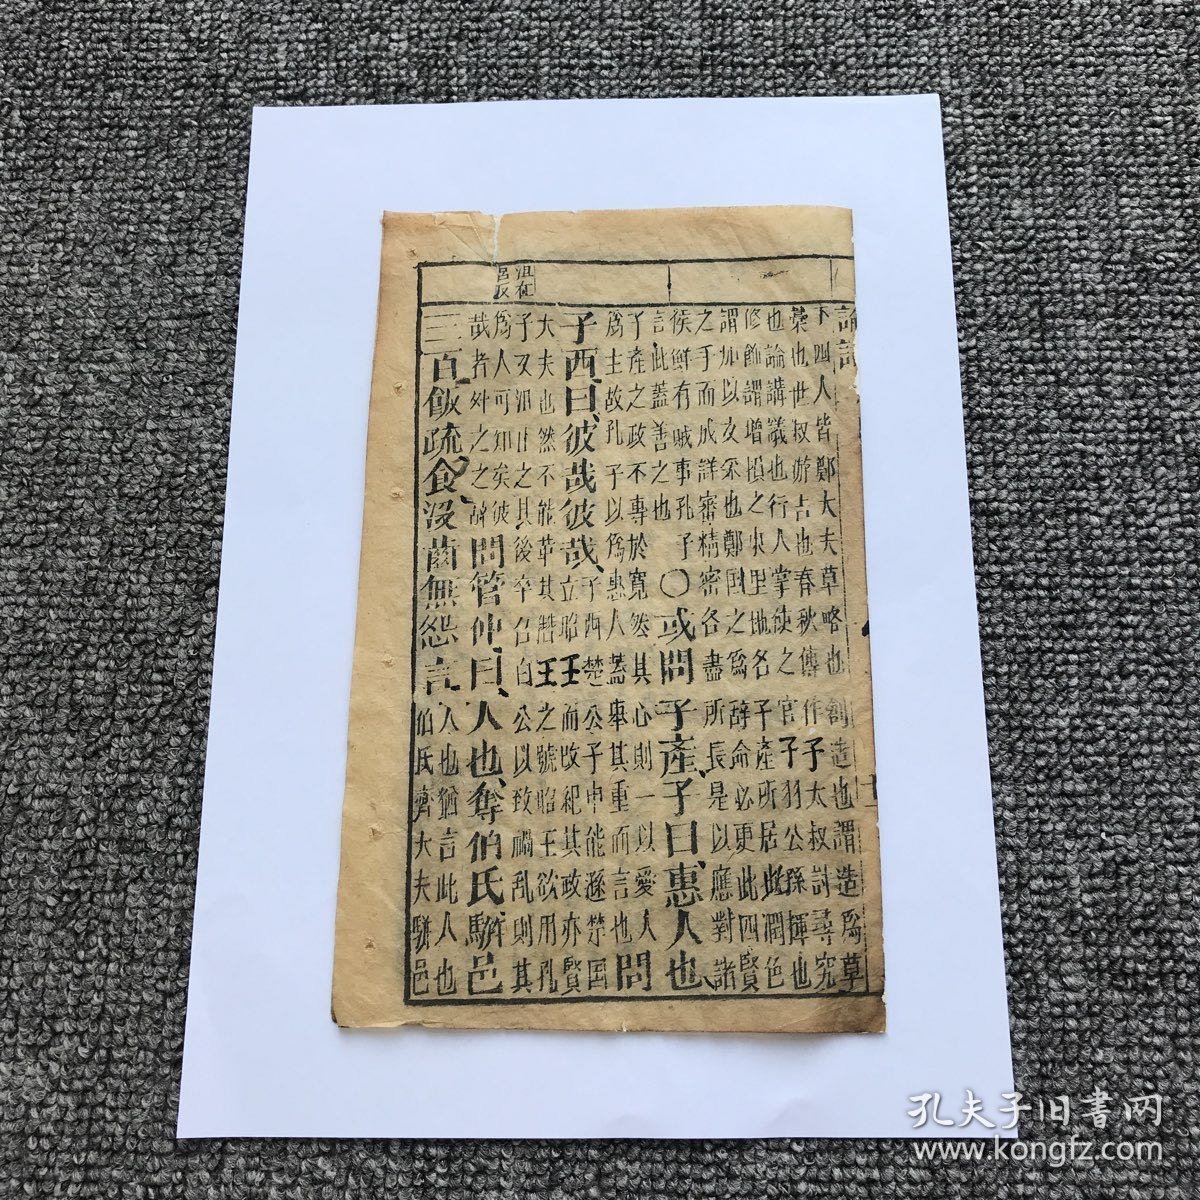 論語
下四人皆鄭大夫草略也創造也謂造爲草
藁也世叔游吉也春秋傳作子太叔討尋究
也論講議也行人掌使之官子羽公孫揮也
修飾謂增損之東里地名子產所居此潤色
謂加以文采也鄭國之爲辭命必更此四賢
之手而成詳審精密各盡所長是以應對諸
侯鮮有敗事孔子
言此蓋善之也
○或問子產、子曰、惠人也、
子產之政不專於寬然其心則一以愛人
爲主故孔子以爲惠人蓋舉其重而言也
問
子西、曰、彼哉彼哉、
子西楚公子申能遜楚国
立昭王而改紀其政亦賢
沮在
呂反
大夫也然不能革其僭王之號昭王欲用孔
子又沮止之其後卒召白公以致禍亂則其
爲人可知矣彼
哉者外之之辭
問管仲、曰、人也、奪伯氏駢邑
三百、飯疏食、沒齒無怨言、
人也猶言此人也
伯氏齊大夫駢邑
孔夫子旧書网
www.kongfz.com